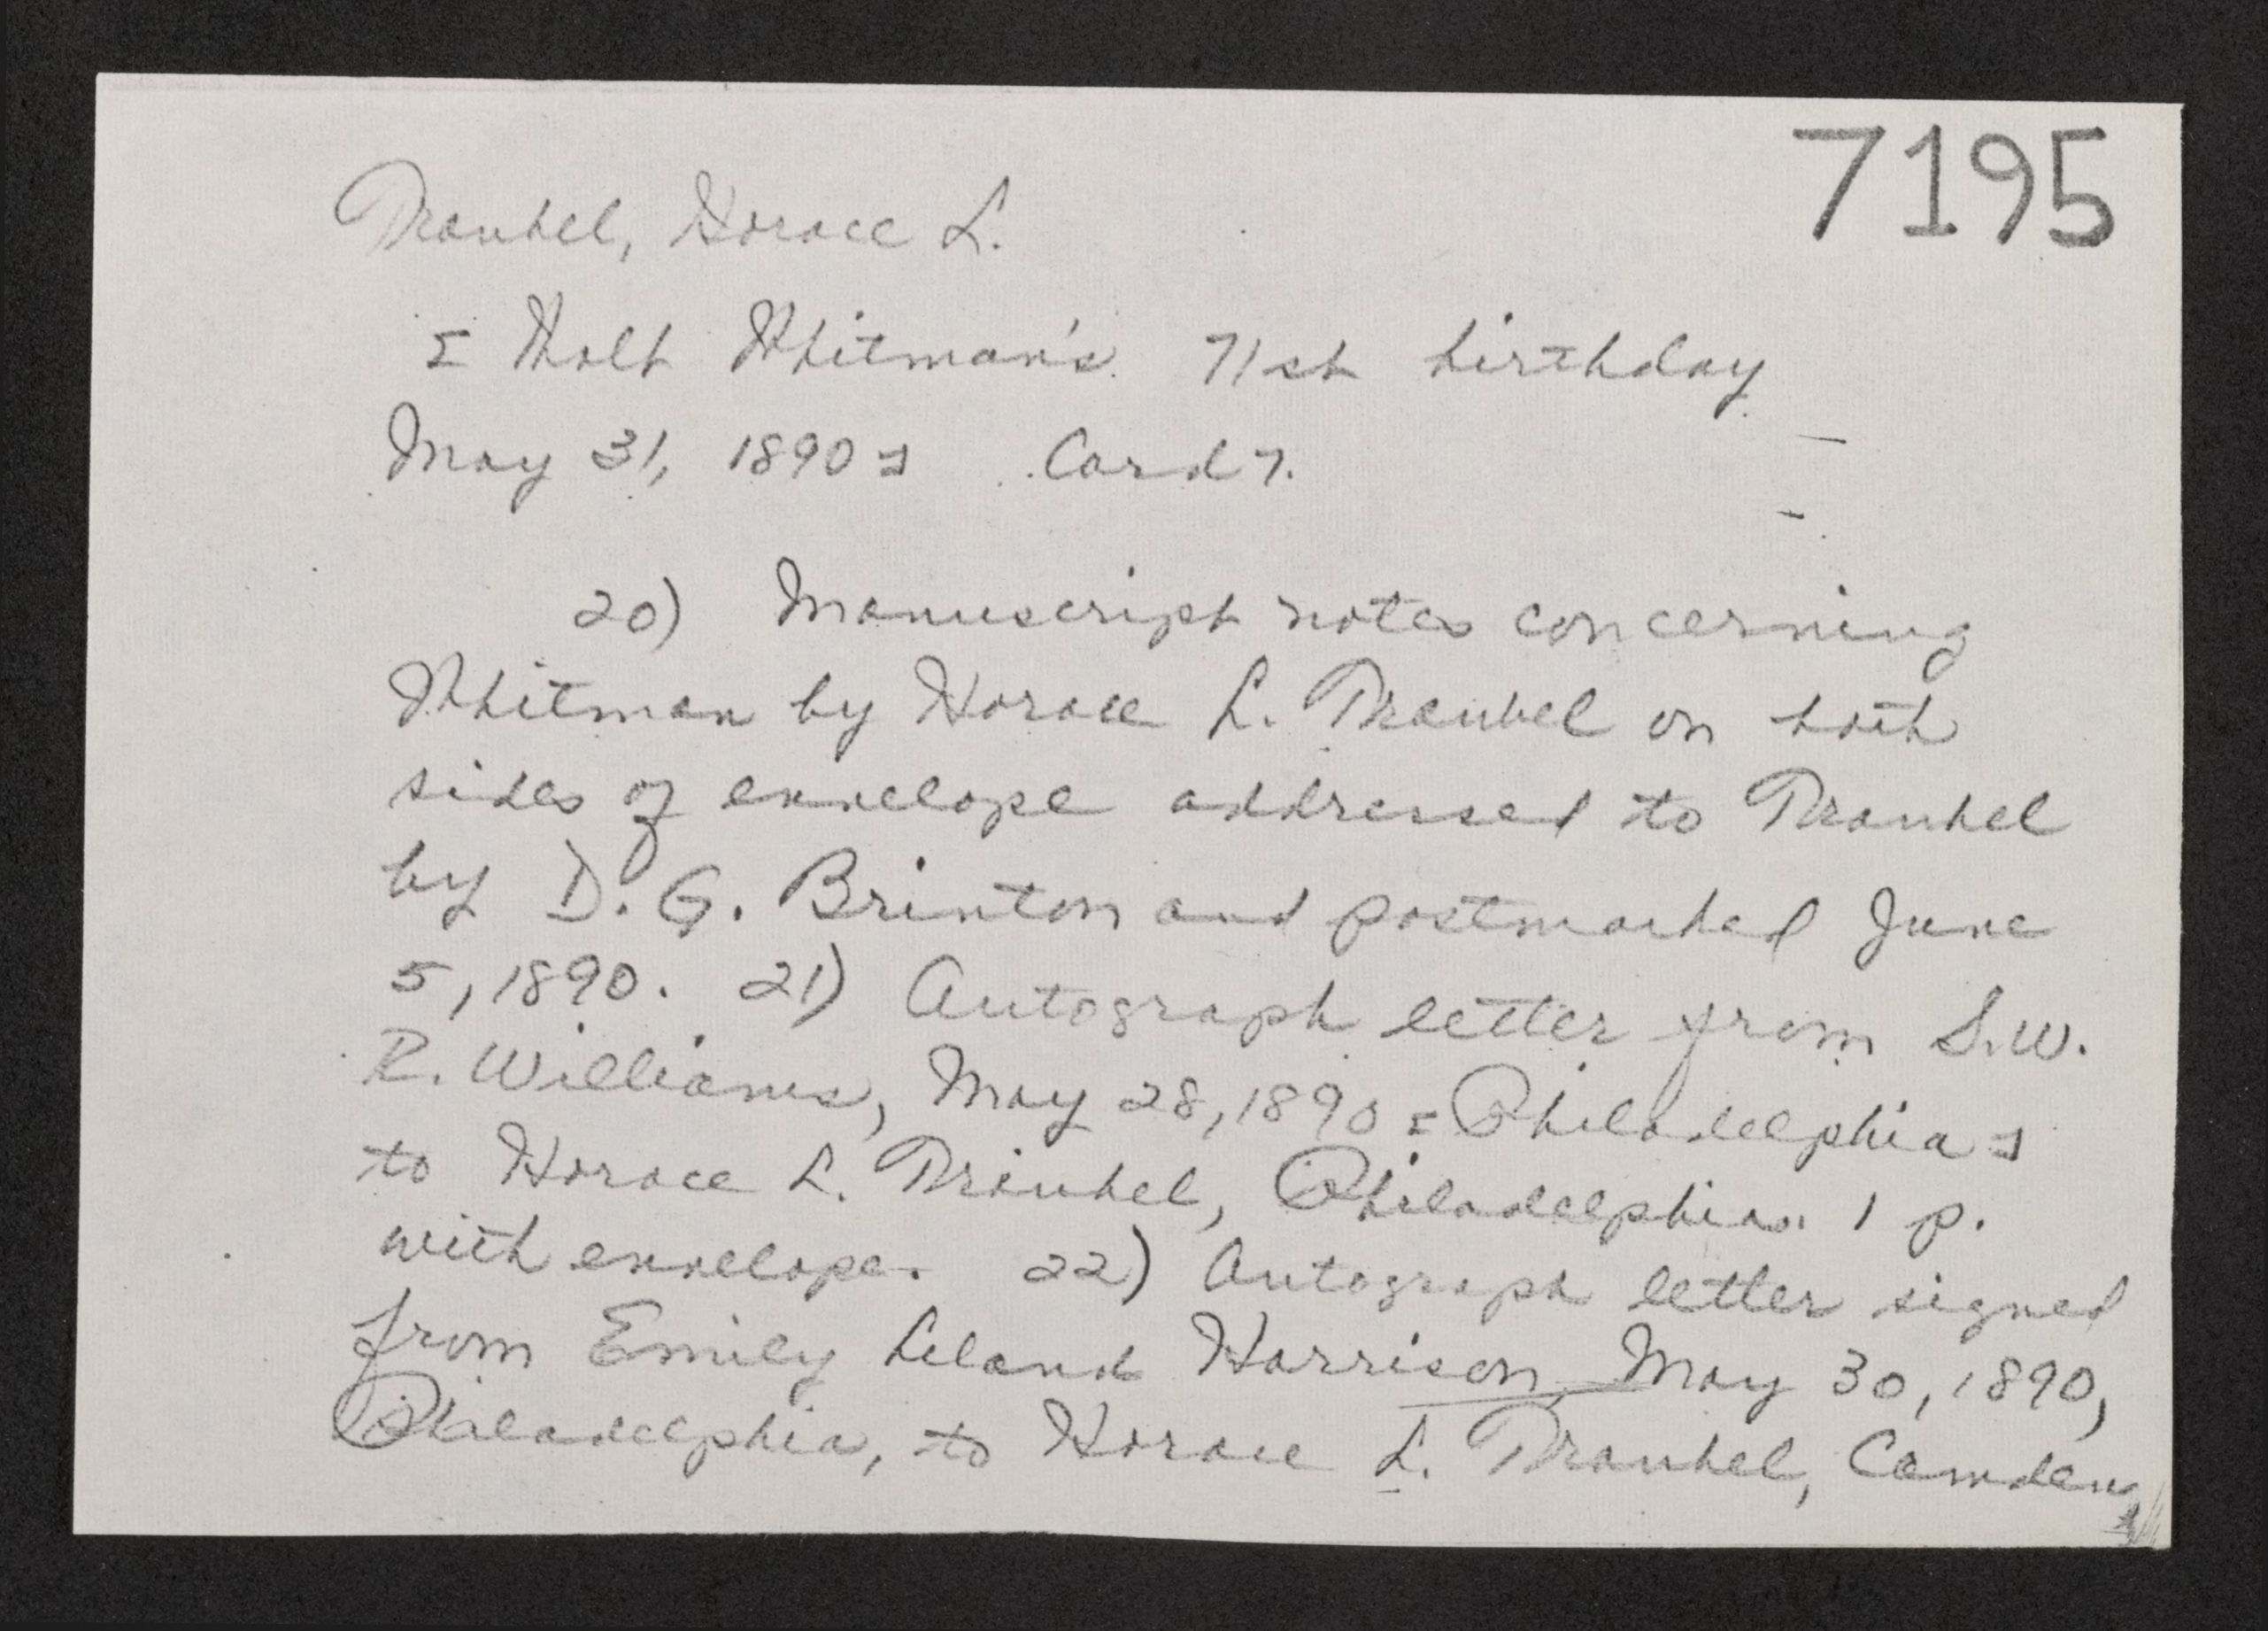 7195
Traubel, Horace L.
[Walt Whitman's 71st birthday
May 31, 1890] Card 7.
20) Manuscript notes concerning
Whitman by Horace L. Traubel on both
sides of envelope addressed to Traubel
by D. G. Brinton and postmarked June
5, 1890. 21) Autograph letter from S.W.
R. Williams, May 28, 1890 [Philadelphia]
to Horace L. Traubel, Philadelphia. 1 p.
with envelope. 22) Autograph letter signed
from Emily Leland Harrison, May 30, 1890,
Philadelphia, to Horace L. Traubel, Camden,